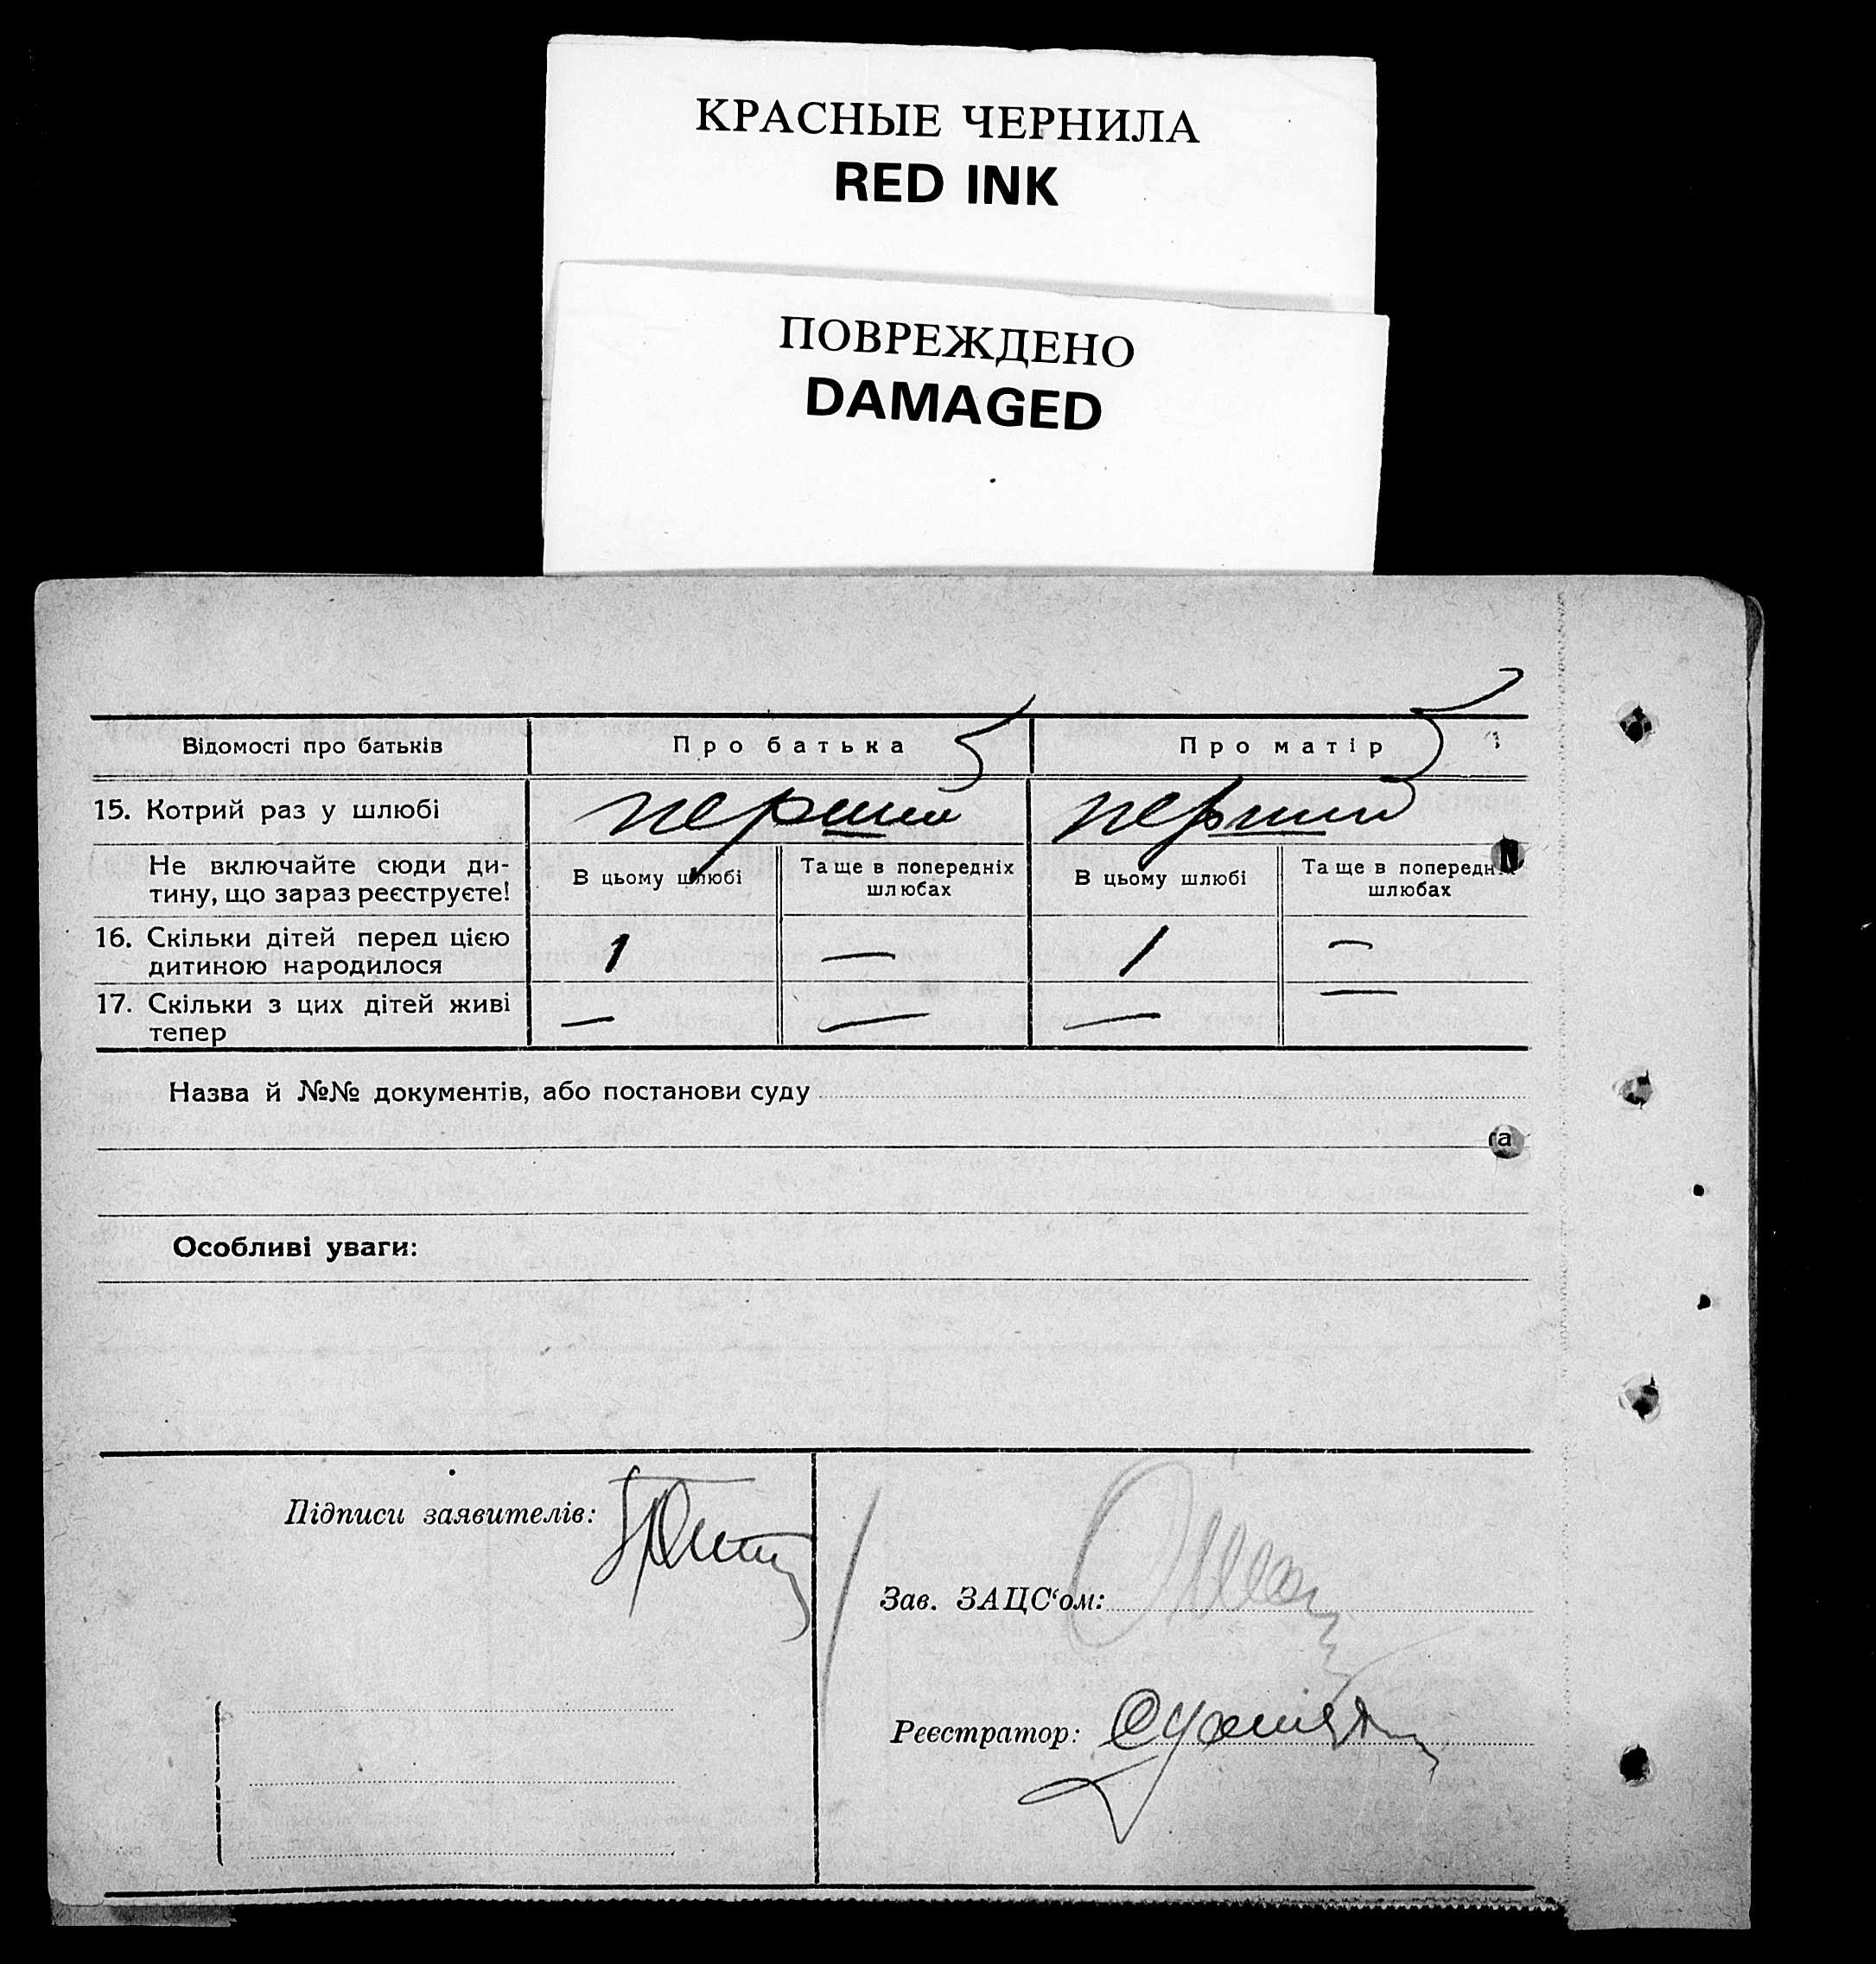 КРАСНЫЕ ЧЕРНИЛА
RED INK
ПОВРЕЖДЕНО
DAMAGED
Відомості про батьків Про батька Про матір
15. Котрий раз у шлюбі перший перший
Не включайте сюди ди-
тину, що зараз реєструєте!
В цьому шлюбі
Та ще в попередніх
шлюбах
В цьому шлюбі
Та ще в попередн
шлюбах
16. Скільки дітей перед цією
дитиною народилося
1 — 1 —
17. Скільки з цих дітей живі
тепер
— — — —
Назва й №№ документів, або постанови суду
Особливі уваги:
Підписи заявителів:
Зав. ЗАЦС‘ом:
Реєстратор: